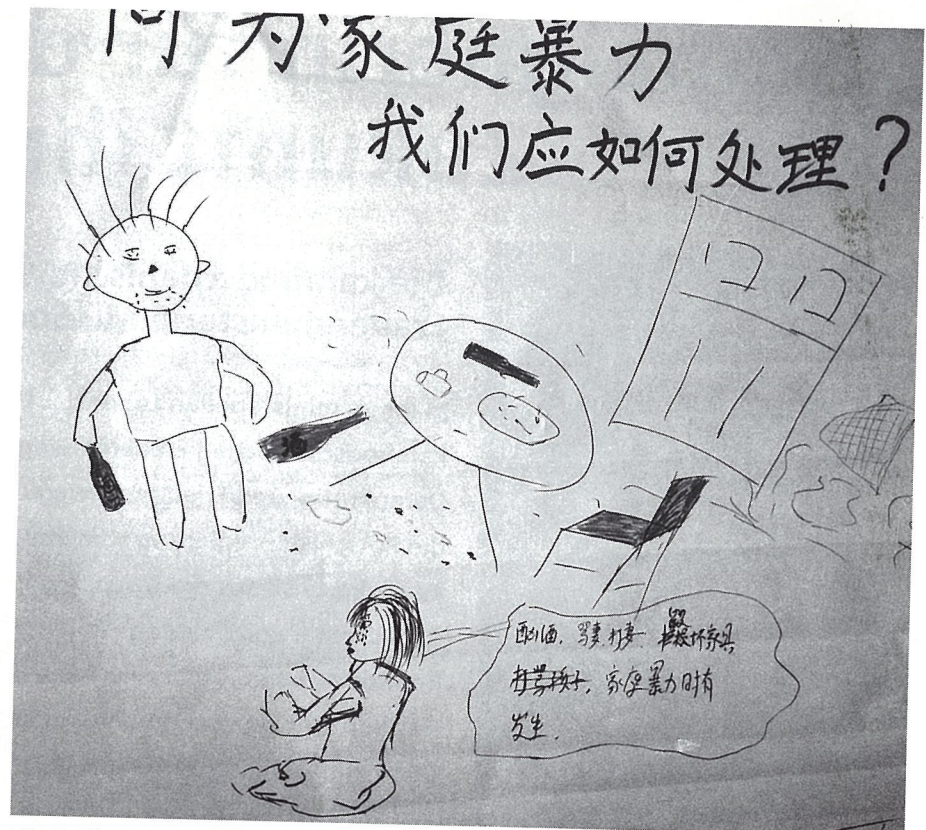 何为家庭暴力
我们应如何处理？
酗酒.骂妻.打妻 毁坏家具
打骂孩子.家庭暴力时有
发生.